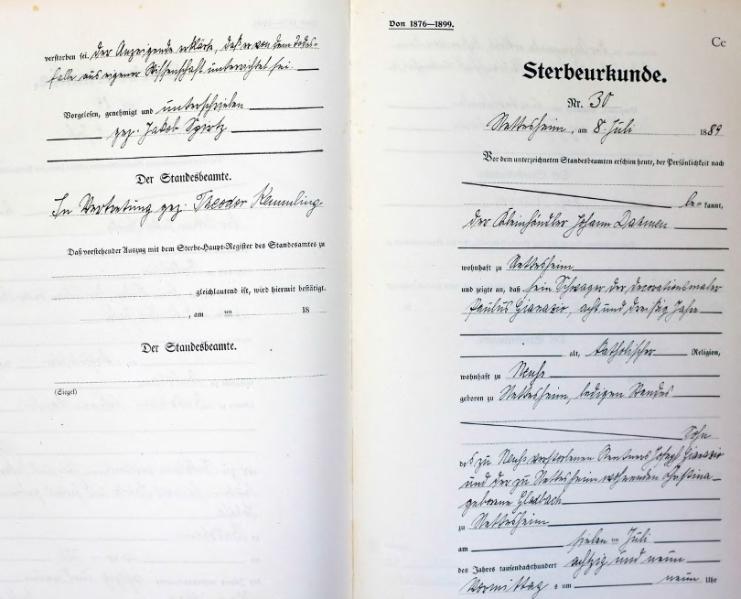 verstorben sei. Der Anzeigende erklärte, daß er von dem Todes-
falle aus eigener Wissenschaft unterrichtet sei.
Vorgelesen, genehmigt und unterschrieben
gez. Jakob Spirtz
Der Standesbeamte.
In Vertretung gez: Theodor
Daß vorstehender Auszug mit dem Sterbe-Haupt-Register des Standesamtes zu
gleichlautend ist, wird hiermit bestätigt.
, am ten 18
Der Standesbeamte.
(Siegel)
Von 1876—1899.
Cc
Sterbeurkunde.
Nr. 30
Nettesheim, am 8. Juli 1889
Vor dem unterzeichneten Standesbeamten erschien heute, der Persönlichkeit nach
be= kannt,
der Kleinhändler Johann Daemen
wohnhaft zu Nettesheim
und zeigte an, daß sein Schwager der Decorationsmaler
Paulus, acht und dreißig Jahre
alt, katholischer Religion,
wohnhaft zu Neuß
geboren zu Nettesheim, ledigen Standes
Sohn
des zu Neuß verstorbenen Rentners Joseph
und der zu Nettesheim wohnenden Christina
geborene Esebach
zu Nettesheim
am sieben ten Juli
des Jahrs tausendachthundert achtzig und neun
Vormittags um neun Uhr